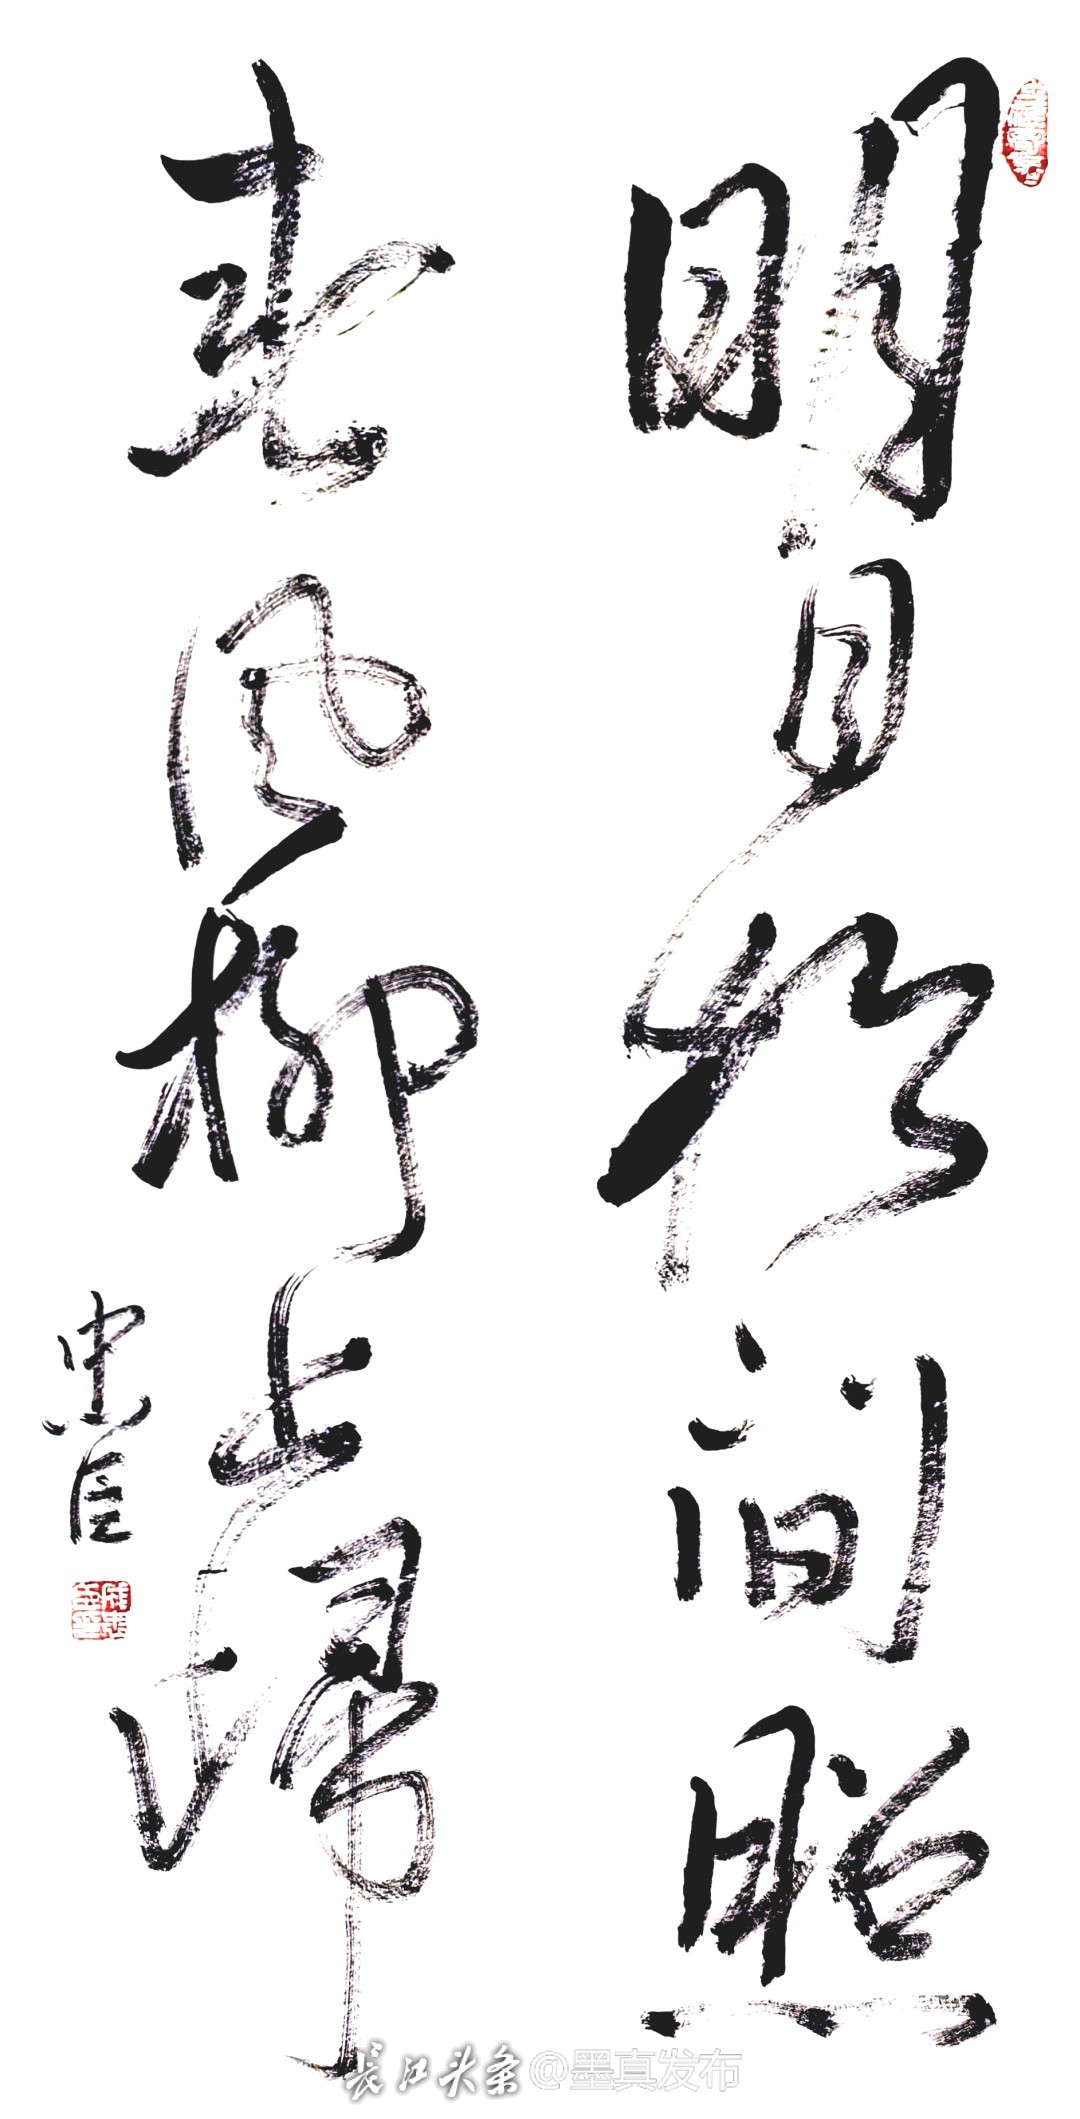 明月松间照
春风柳上歸
忠臣
长江头条 @墨真发布